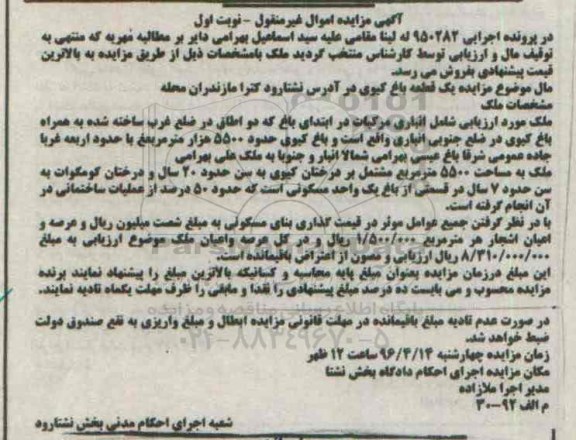 آگهی مزایده اموال غیرمنقول - نوبت اول
در پرونده اجرایی ۹۵۰۲۸۲ له لینا مقامی علیه سید اسماعیل بهرامی دایر بر مطالبه مهریه که منتهی به
توقیف مال و ارزیابی توسط کارشناس منتخب گردید ملک بامشخصات ذیل از طریق مزایده به بالاترین
قیمت پیشنهادی بفروش می رسد.
مال موضوع مزایده یک قطعه باغ کیوی در آدرس نشتارود کترا مازندران محله
مشخصات ملک
ملک مورد ارزیابی شامل انباری مرکبات در ابتدای باغ که دو اطاق در ضلع غرب ساخته شده به همراه
باغ کیوی در ضلع جنوبی انباری واقع است و باغ کیوی حدود ۵۵۰۰ هزار مترمربع با حدود اربعه غربا
جاده عمومی شرقا باغ عیسی بهرامی شمالا انبار و جنوبا به ملک علی بهرامی
ملک به مساحت ۵۵۰۰ مترمربع مشتمل بر درختان کیوی به سن حدود ۲۰ سال و درختان کومکوات به
سن حدود ۷ سال در قسمتی از باغ یک واحد مسکونی است که حدود ۵۰ درصد از عملیات ساختمانی در
آن انجام گرفته است.
با در نظر گرفتن جمیع عوامل موثر در قیمت گذاری بنای مسکونی به مبلغ شصت میلیون ریال و عرصه و
اعیان اشجار هر مترمربع ۱/۵۰۰/۰۰۰ ریال و در کل عرصه واعیان ملک موضوع ارزیابی به مبلغ
۸/۳۱۰/۰۰۰/۰۰۰ ریال ارزیابی و مصون از اعتراض باقیمانده است.
این مبلغ درزمان مزایده بعنوان مبلغ پایه محاسبه و کسانیکه بالاترین مبلغ را پیشنهاد نمایند برنده
مزایده محسوب و می بایست ده درصد مبلغ پیشنهادی را نقدا و مابقی را ظرف مهلت یکماه تادیه نمایند.
در صورت عدم تادیه مبلغ باقیمانده در مهلت قانونی مزایده ابطال و مبلغ واریزی به نفع صندوق دولت
ضبط خواهد شد.
زمان مزایده چهارشنبه ۹۶/۴/۱۴ ساعت ۱۲ ظهر
مکان مزایده اجرای احکام دادگاه بخش نشتا
مدیر اجرا ملازاده
م الف ۹۲-۳۰
شعبه اجرای احکام مدنی بخش نشتارود
پایگاه اطلاع رسانی مناقصه و مزایده
۰۲۱-۸۸۳۴۹۶۷۰-۵